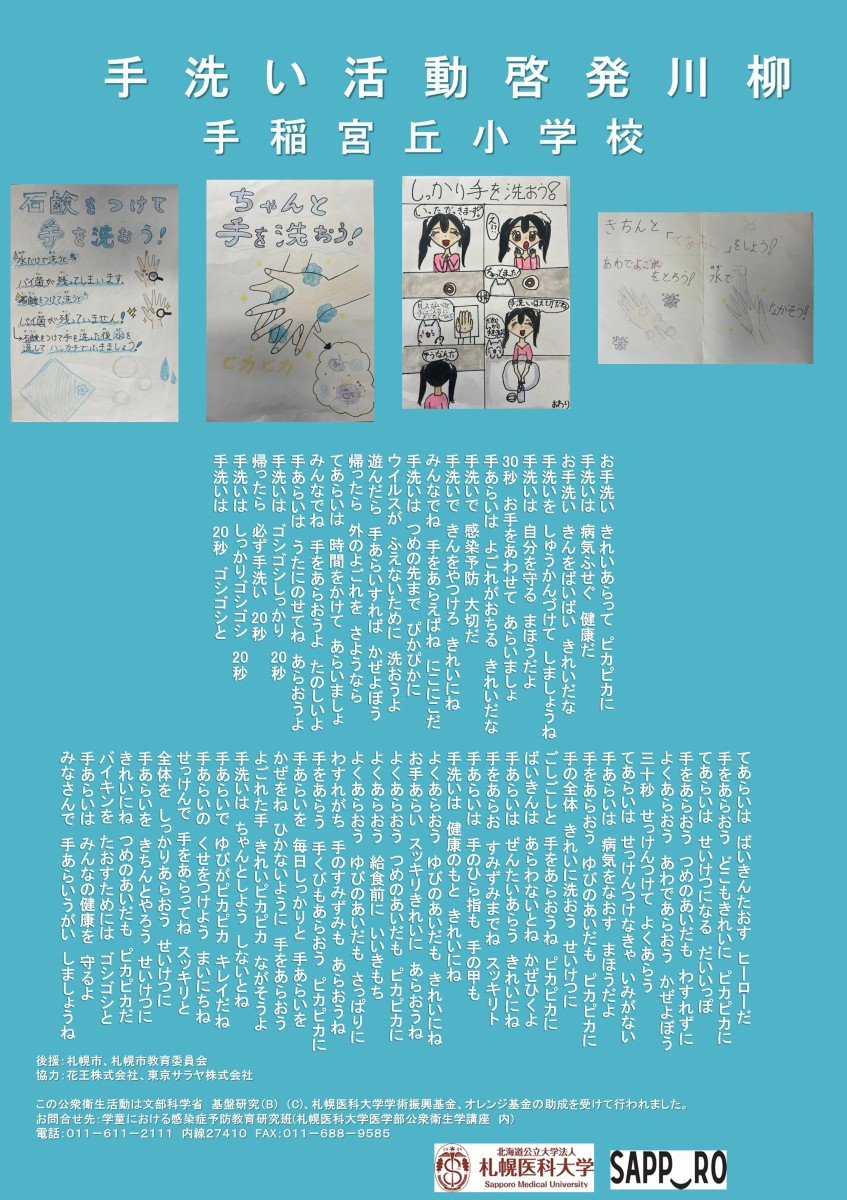 手洗い活動啓発川柳
手稲宮丘小学校
石鹸をつけて
手を洗おう!
水だけで洗うと
バイ菌が残ってしまいます。
石鹸をつけて洗うと
バイ菌が残っていません!
→石鹸をつけて手を洗った後水を
流してハンカチでふきましょう!
ちゃんと
手を洗おう!
ピカピカ
しっかり手を洗おう!
いっただっきまーす!
え!?
ちょっとまった!
そうなんだ
手洗いは大切だね!
おわり
きちんと
「てあらい」をしよう!
あわでよごれ
をとろう!
水で
ながそう!
お手洗い きれいあらって ピカピカに
手洗いは 病気ふせぐ 健康だ
お手洗い きんをばいばい きれいだな
手洗いを しゅうかんづけて しましょうね
手洗いは 自分を守る まほうだよ
30秒 お手をあわせて あらいましょ
手あらいは よごれがおちる きれいだな
手洗いで 感染予防 大切だ
手洗いで きんをやつけろ きれいにね
みんなでね 手をあらえばね にこにこだ
手洗いは つめの先まで ぴかぴかに
ウイルスが ふえないために 洗おうよ
遊んだら 手あらいすれば かぜよぼう
帰ったら 外のよごれを さようなら
てあらいは 時間をかけて あらいましょ
みんなでね 手をあらおうよ たのしいよ
手あらいは うたにのせてね あらおうよ
手洗いは ゴシゴシしっかり 20秒
帰ったら 必ず手洗い 20秒
手洗いは しっかりゴシゴシ 20秒
手洗いは 20秒 ゴシゴシと
てあらいは ばいきんたおす ヒーローだ
手をあらおう どこもきれいに ピカピカに
てあらいは せいけつになる だいいっぽ
手をあらおう つめのあいだも わすれずに
よくあらおう あわであらおう かぜよぼう
三十秒 せっけんつけて よくあらう
てあらいは せっけんつけなきゃ いみがない
手あらいは 病気をなおす まほうだよ
手をあらおう ゆびのあいだも ピカピカに
手の全体 きれいに洗おう せいけつに
ごしごしと 手をあらおうね ピカピカに
ばいきんは あらわないとね かぜひくよ
手あらいは ぜんたいあらう きれいにね
手をあらお すみずみまでね スッキリト
手あらいは 手のひら指も 手の甲も
手洗いは 健康のもと きれいにね
よくあらおう ゆびのあいだも きれいにね
お手あらい スッキリきれいに あらおうね
よくあらおう つめのあいだも ピカピカに
よくあらおう 給食前に いいきもち
よくあらおう ゆびのあいだも さっぱりに
わすれがち 手のすみずみも あらおうね
手をあらう 手くびもあらおう ピカピカに
手あらいを 毎日しっかりと 手あらいを
かぜをね ひかないように 手をあらおう
よごれた手 きれいピカピカ ながそうよ
手洗いは ちゃんとしよう しないとね
手あらいで ゆびがピカピカ キレイだね
手あらいの くせをつけよう まいにちね
せっけんで 手をあらってね スッキリと
全体を しっかりあらおう せいけつに
手あらいを きちんとやろう せいけつに
きれいにね つめのあいだも ピカピカだ
バイキンを たおすためには ゴシゴシと
手あらいは みんなの健康を 守るよ
みなさんで 手あらいうがい しましょうね
後援:札幌市、札幌市教育委員会
協力:花王株式会社、東京サラヤ株式会社
この公衆衛生活動は文部科学省 基盤研究(B) (C)、札幌医科大学学術振興基金、オレンジ基金の助成を受けて行われました。
お問合せ先:学童における感染症予防教育研究班(札幌医科大学医学部公衆衛生学講座 内)
電話:011-611-2111 内線27410 FAX:011-688-9585
北海道公立大学法人
札幌医科大学
Sapporo Medical University
SAPP_RO